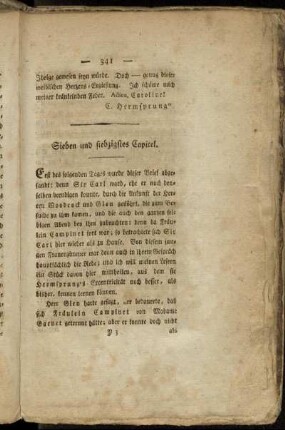 — 341 —
Folge gewesen seyn würde. Doch — genug dieser
weiblichen Herzens-Ergießung. Ich sehne mich nach
meiner
Adieu, Caroline!
C. Hermsprung."
Sieben und siebzigstes Capitel.
Erst des folgenden Tages wurde dieser Brief abge-
sandt; denn Sir Carl ward, ehe er noch den-
selben beendigen konnte, durch die Ankunft der Her-
ren Woodrock und Glen gestört, die zum Be-
suche zu ihm kamen, und die auch den ganzen
Abend bey ihm zubrachten; denn da Fräu-
lein Campinet fort war, so betrachtete sich Sir
Carl hier wieder als zu Hause. Von diesen jun-
gen Frauenzimmer war denn auch in ihrem Gespräch
die Rede; und ich will meinen Lesern
ein Stück davon hier mittheilen, aus dem sie
Hermsprungs Excentricität noch besser, als
bisher, kennen lernen können.
Herr Glen hatte gesagt, er bedauerte, daß
sich Fräulein Campinet von Madame
Garnet getrennt hätte; aber er konnte doch nicht
als